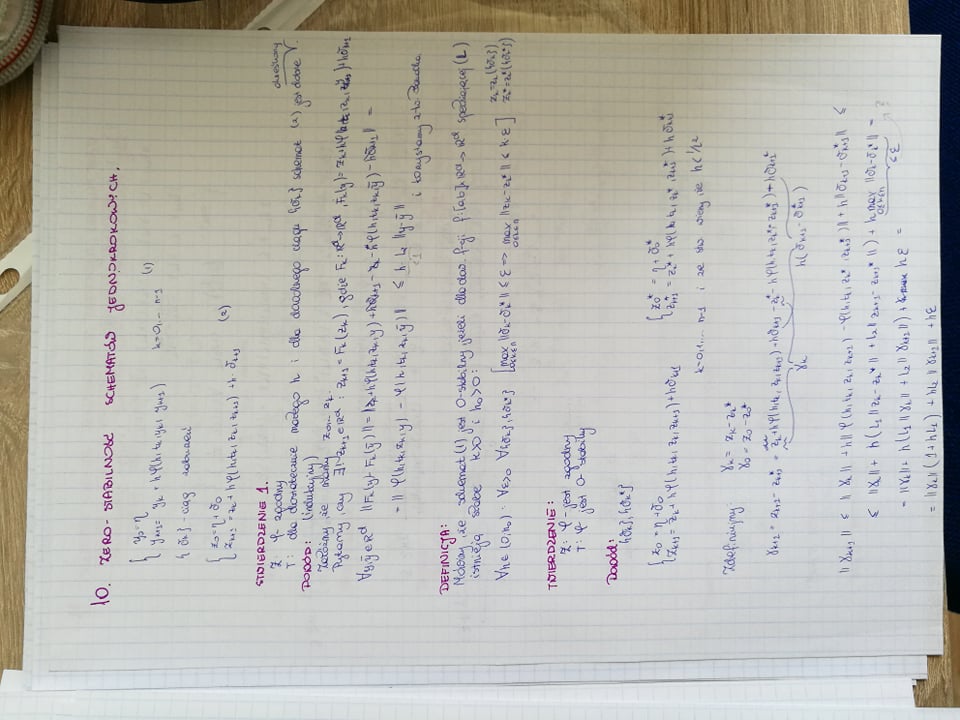 10. ZERO-STABILNOŚĆ SCHEMATÓW JEDNOKROKOWYCH.
{ y₀ = η
y_{k+1} = y_k + hφ(h, t_k, y_k, y_{k+1}) k=0,... n-1 (1)
{δ_k} - ciąg zaburzeń
{ z₀ = η + δ₀
z_{k+1} = z_k + hφ(h, t_k, z_k, z_{k+1}) + h·δ_{k+1} (2)
STWIERDZENIE 1.
Z: φ- zgodny
T: dla dostatecznie małego h i dla dowolnego ciągu {δ_k} schemat (2) jest dobrze określony.
DOWÓD: (indukcyjny)
Załóżmy, że mamy z₀... z_k.
Pytamy, czy ∃! z_{k+1} ∈ ℝᵈ : z_{k+1} = F_k(z_k), gdzie F_k: ℝᵈ → ℝᵈ, F_k(y) = z_k + hφ(h, t_k, z_k, y) + hδ_{k+1}
∀y,ȳ∈ℝᵈ ||F_k(y) - F_k(ȳ)|| = ||z_k + hφ(h,t_k,z_k,y) + hδ_{k+1} - z_k - hφ(h,t_k,z_k,ȳ) - hδ_{k+1}|| =
= || φ(h,t_k,z_k,y) - φ(h,t_k,z_k,ȳ) || ≤ h·L₂ ||y-ȳ||
<1 i korzystamy z tw. Banacha.
DEFINICJA:
Mówimy, że schemat (1) jest 0-stabilny, jeżeli dla dow. f-cji f:[a,b]×ℝᵈ → ℝᵈ spełniającej (L)
istnieją stałe K>0 i h₀>0:
∀h∈(0,h₀) : ∀ε>0 ∀{δ_k},{δ_k*} [max_{0≤k≤n} ||δ_k - δ_k*|| ≤ ε ⇒ max_{0≤k≤n} ||z_k - z_k*|| ≤ K·ε] z_k = z_k({δ_k})
z_k* = z_k*({δ_k*})
TWIERDZENIE:
Z: φ- jest zgodny
T: φ jest 0-stabilny
Dowód:
{δ_k}, {δ_k*}
{ z₀ = η + δ₀ { z₀* = η + δ₀*
z_{k+1} = z_k + hφ(h,t_k,z_k,z_{k+1}) + hδ_{k+1} z_{k+1}* = z_k* + hφ(h,t_k,z_k*,z_{k+1}*) + hδ_{k+1}*
k=0,1,... n-1 i ze stw wiemy, że h < 1/L₂
Zdefiniujmy: γ_k = z_k - z_k*
γ₀ = z₀ - z₀*
γ_{k+1} = z_{k+1} - z_{k+1}* = z_k + hφ(h,t_k,z_k,z_{k+1}) + hδ_{k+1} - z_k* - hφ(h,t_k,z_k*,z_{k+1}*) + hδ_{k+1}*
γ_k h(δ_{k+1} - δ_{k+1}*)
||γ_{k+1}|| ≤ ||γ_k|| + h||φ(h,t_k,z_k,z_{k+1}) - φ(h,t_k,z_k*,z_{k+1}*)|| + h||δ_{k+1} - δ_{k+1}*|| ≤
≤ ||γ_k|| + h(L₁||z_k - z_k*|| + L₂||z_{k+1} - z_{k+1}*||) + h max_{0≤k≤n} ||δ_k - δ_k*|| =
≤ε ?
= ||γ_k|| + h(L₁||γ_k|| + L₂||γ_{k+1}||) + hε =
= ||γ_k||(1 + hL₁) + hL₂||γ_{k+1}|| + hε